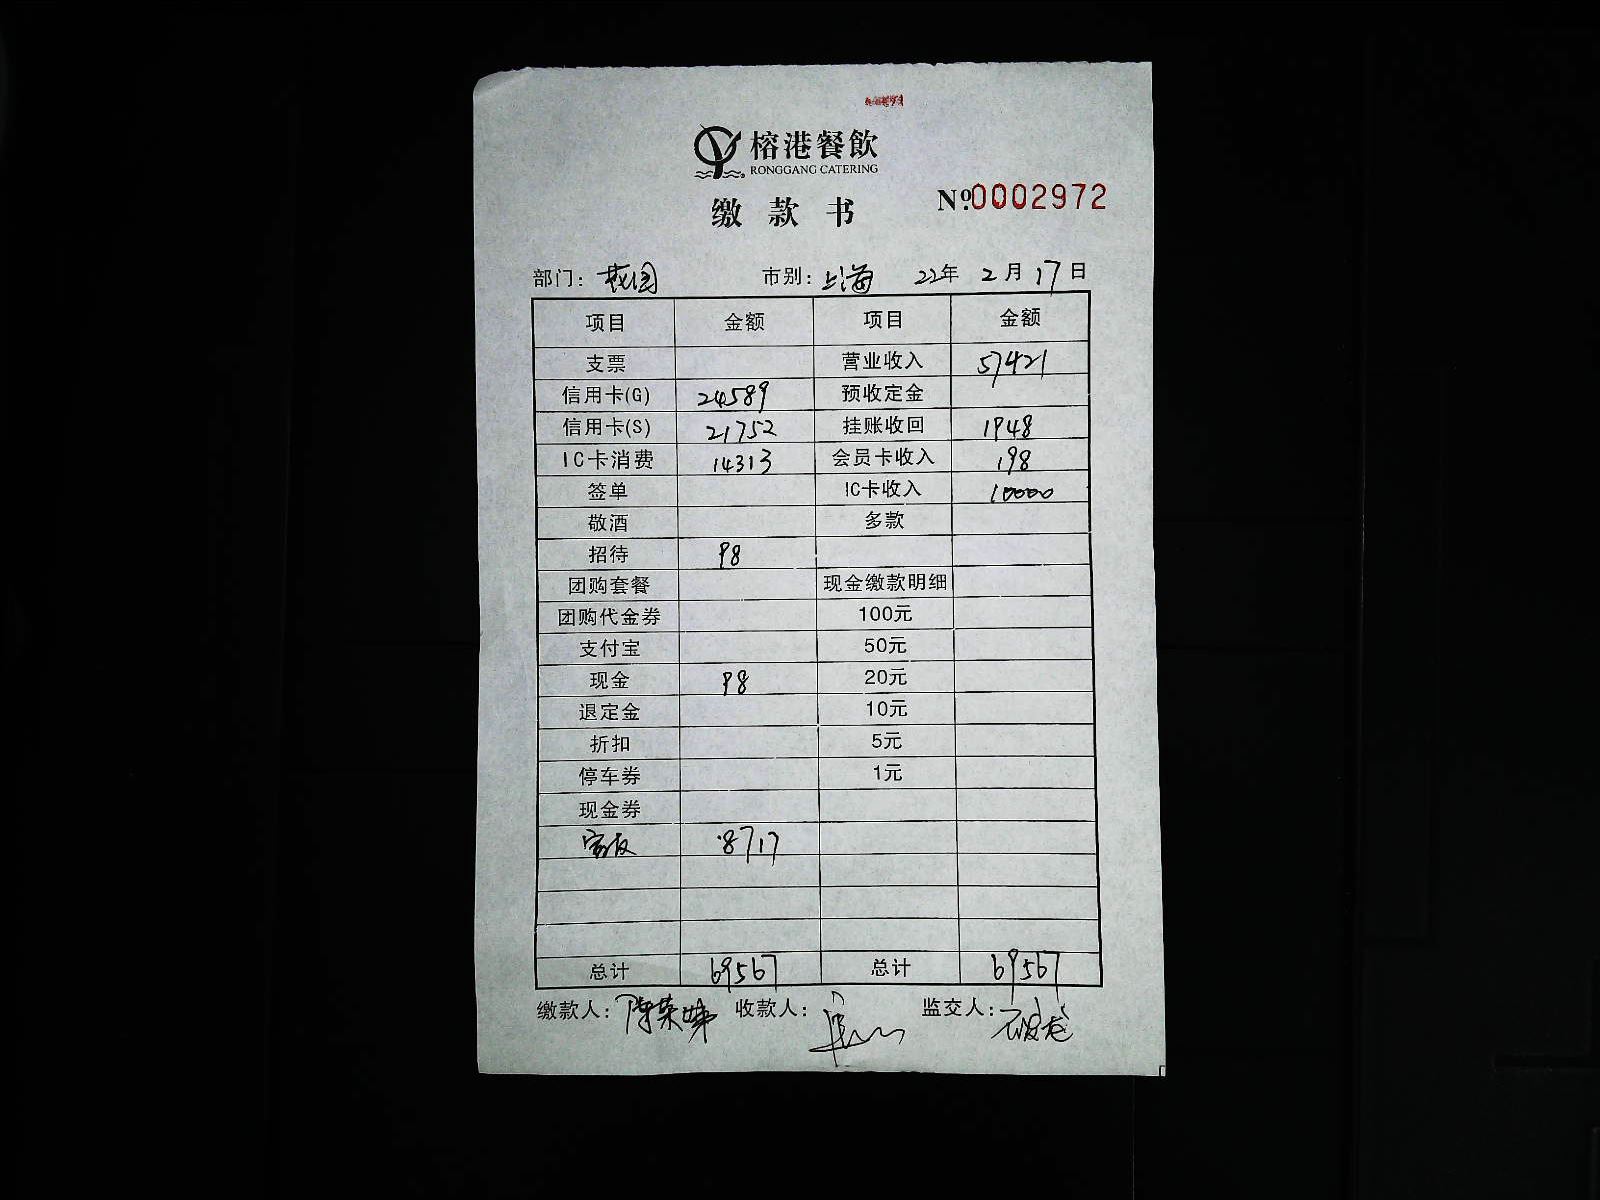 榕港餐飲
RONGGANG CATERING
№0002972
缴款书
部门: 市别: 上海 22年 2月 17日
项目 金额 项目 金额
支票 营业收入 57421
信用卡(G) 24589 预收定金
信用卡(S) 21752 挂账收回 1948
IC卡消费 14313 会员卡收入 198
签单 IC卡收入 10000
敬酒 多款
招待 98
团购套餐 现金缴款明细
团购代金券 100元
支付宝 50元
现金 98 20元
退定金 10元
折扣 5元
停车券 1元
现金券
8717
总计 69567 总计 69567
缴款人: 陈荣娣 收款人: 监交人: